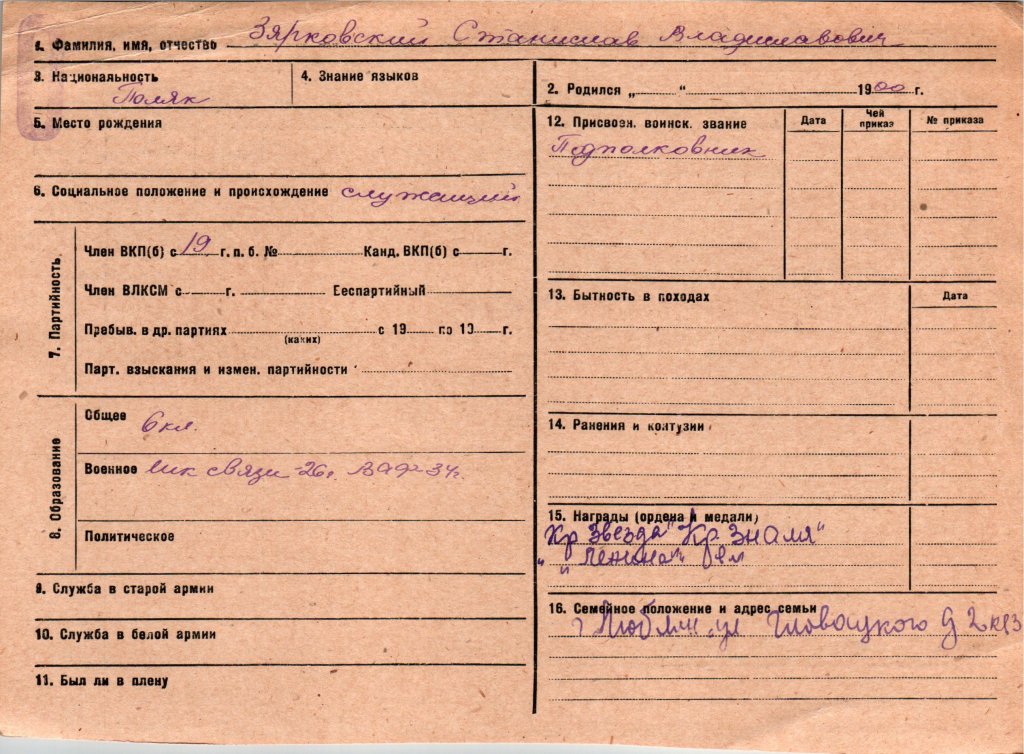 1. Фамилия, имя, отчество Зярковский Станислав Владиславович
3. Национальность
Поляк
4. Знание языков
2. Родился „ “ 1900 г.
5. Место рождения
6. Социальное положение и происхождение служащий
7. Партийность
Член ВКП(б) с 19 г. п. б. № Канд. ВКП(б) с г.
Член ВЛКСМ с г. Беспартийный
Пребыв. в др. партиях с 19 по 19 г.
(каких)
Парт. взыскания и измен. партийности
8. Образование
Общее 6 кл.
Военное связи - 26г. 34г.
Политическое
9. Служба в старой армии
10. Служба в белой армии
11. Был ли в плену
12. Присвоен. воинск. звание Дата Чей приказ № приказа
Подполковник
13. Бытность в походах Дата
14. Ранения и контузии
15. Награды (ордена и медали)
Кр Звезда" Кр Знамя"
" Ленина"
16. Семейное положение и адрес семьи
г Люблин ул Гловацкого д 2 кв 3